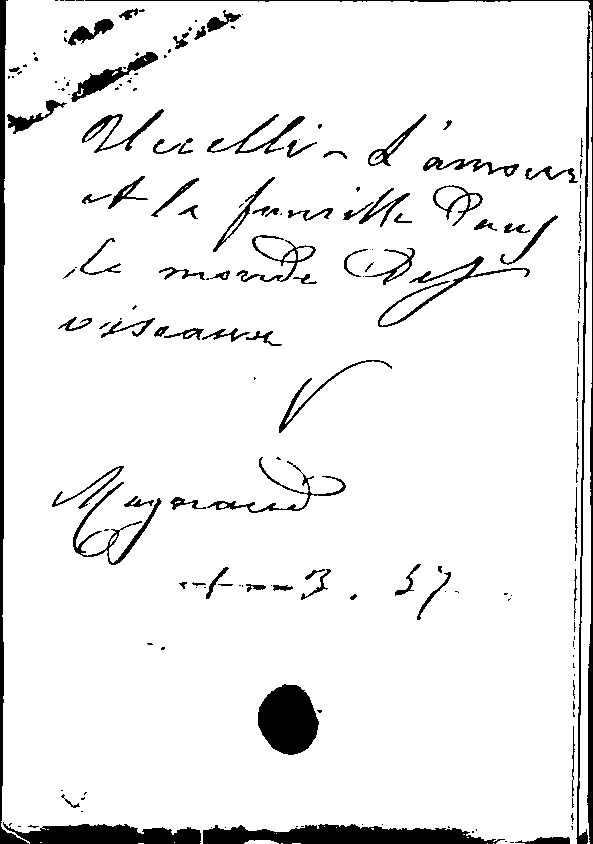 Uccelli - L'amour
et la famille dans
le monde des
oiseaux
V
Magnaud
3. 57